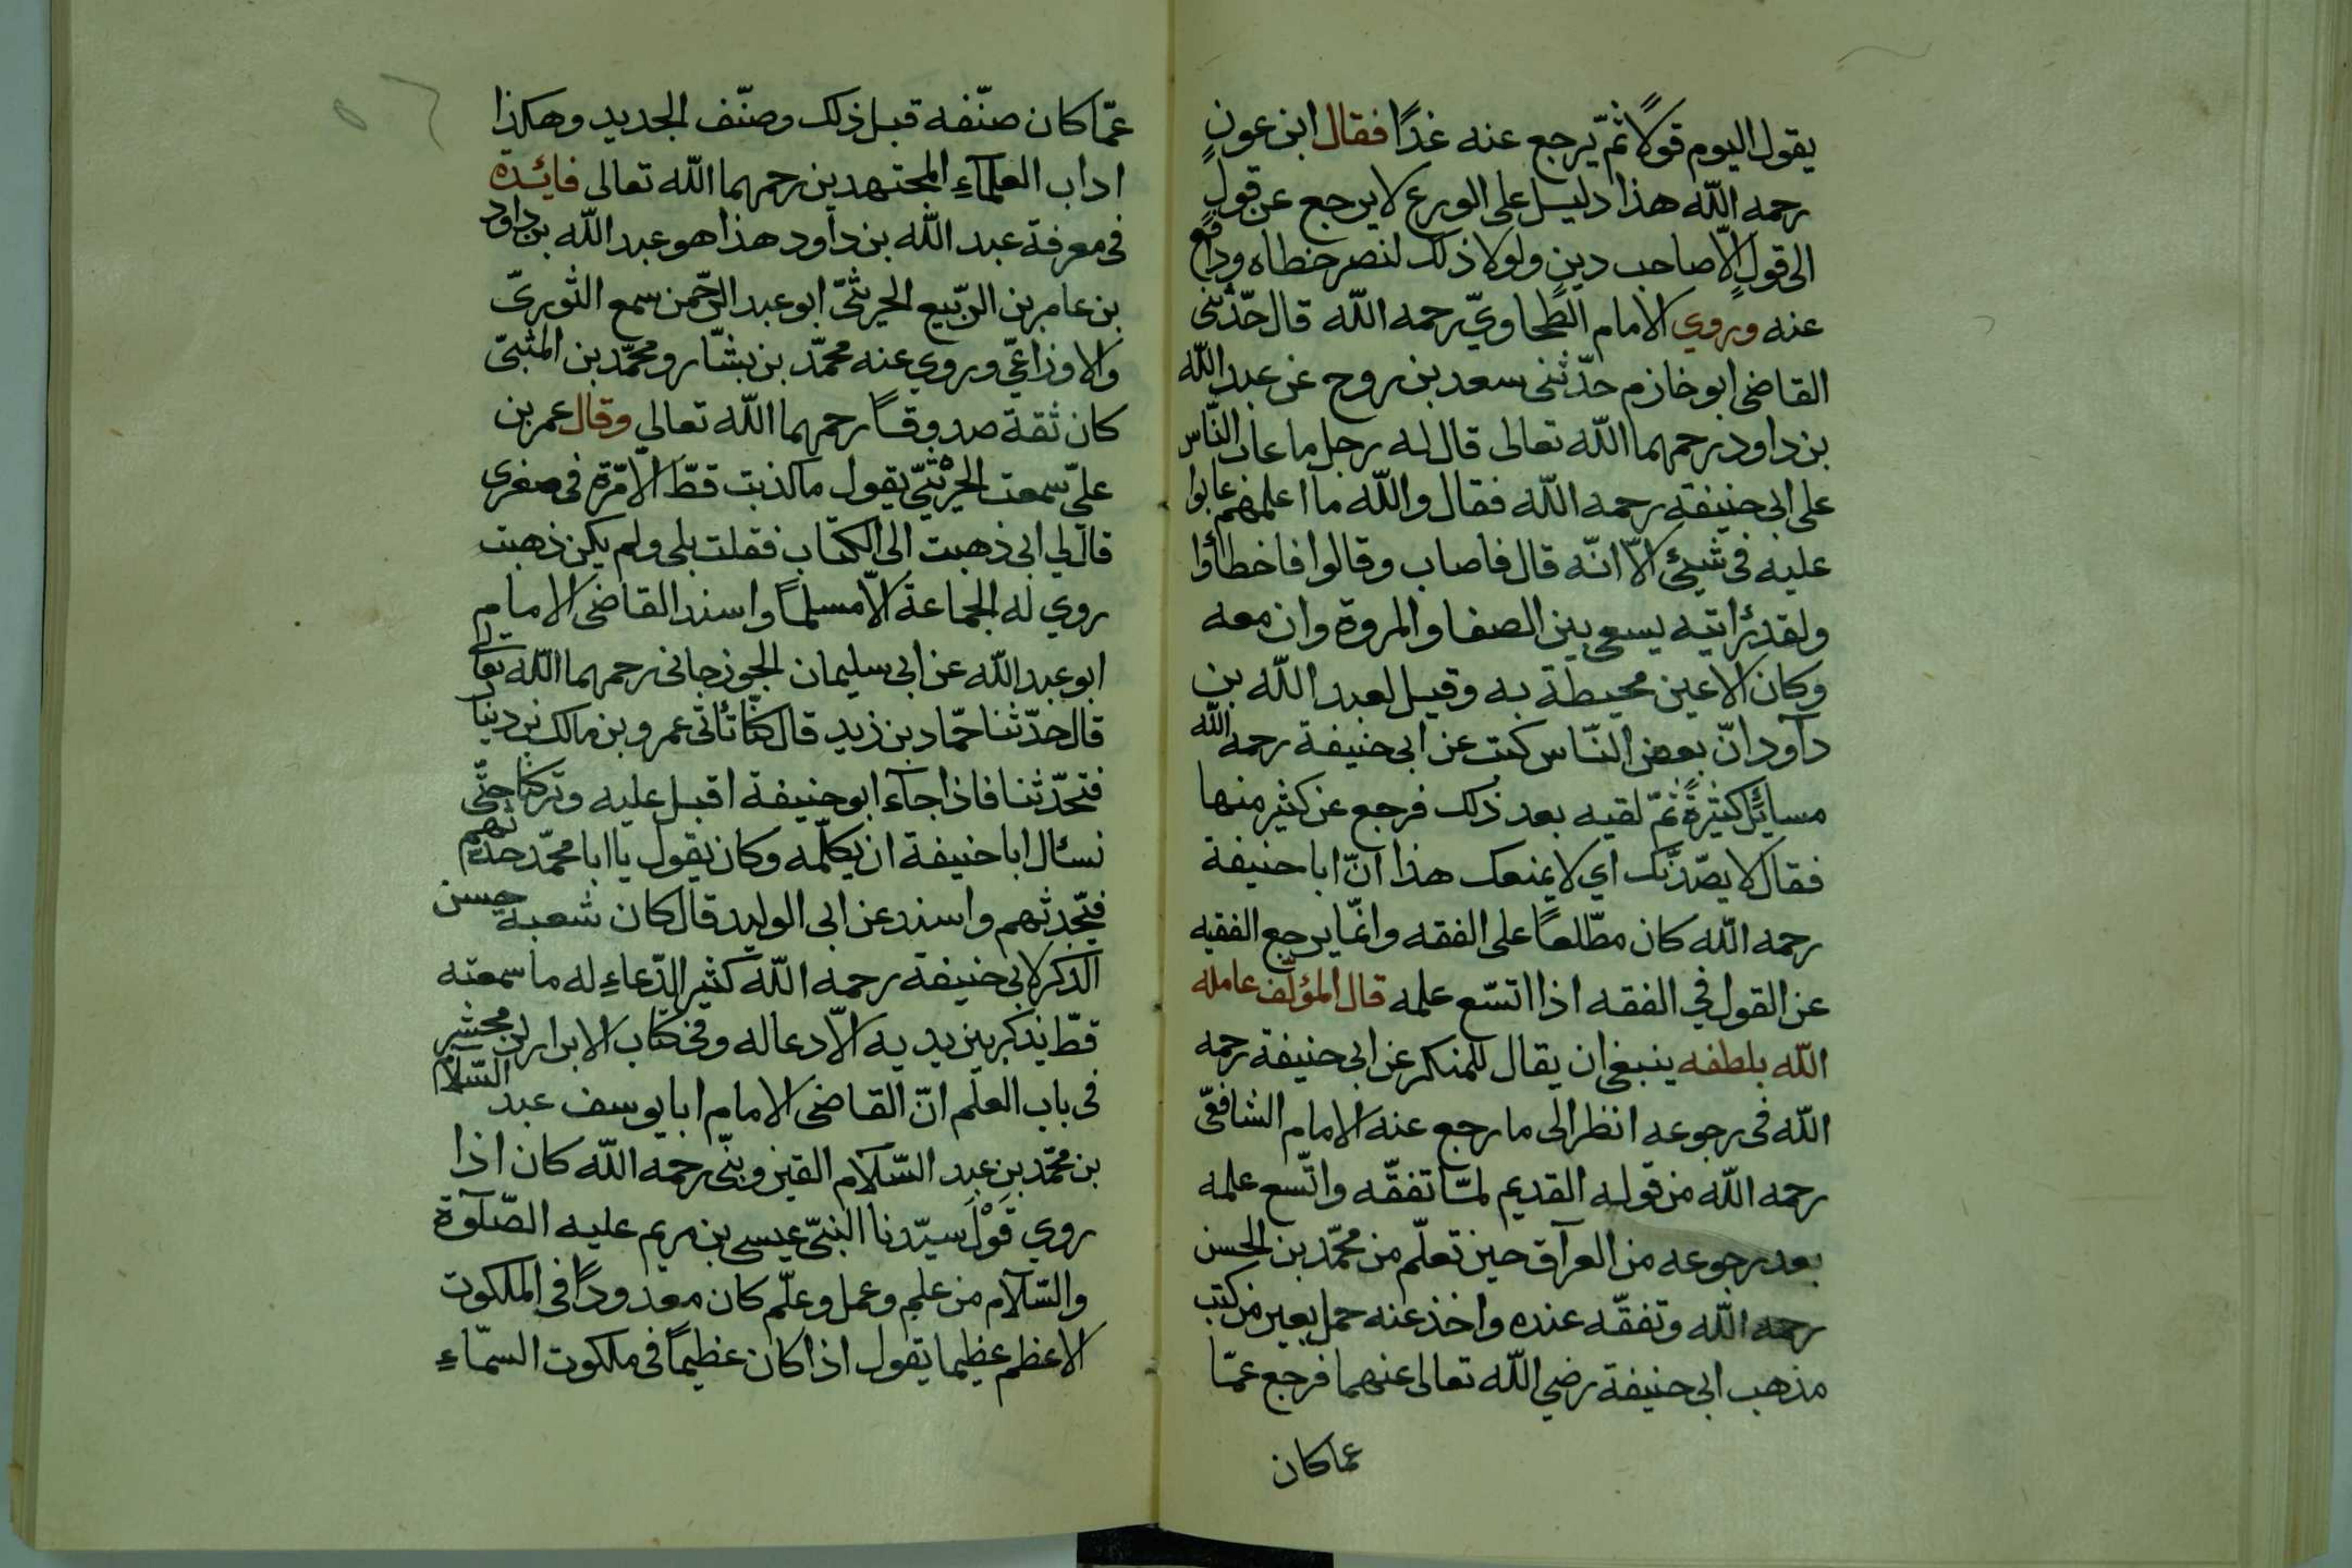 يقول اليوم قولًا ثمّ يرجع عنه غدًا فقال ابن عونٍ
رحمه اللّه هذا دليل على الورع لا يرجع عن قولٍ
الى قولٍ الّا صاحب دين ولولا ذلك لنصر خطاه ودافع
عنه وروي الامام الطّحاويّ رحمه اللّه قال حدّثنى
القاضى ابو خازم حدّثنى سعد بن روح عن عبد اللّه
بن داود رحمهما اللّه تعالى قال له رجل ما عاب النّاس
على ابى حنيفة رحمه اللّه فقال واللّه ما اعلمهم عابوا
عليه فى شيئ الّا انّه قال فاصاب وقالوا فاخطأوا
ولقد رئايته يسعى بين الصفا والمروة وان معه
وكان الاعين محيطة به وقيل لعبد اللّه بن
دآود انّ بعض النّاس كتب عن ابى حنيفة رحمه اللّه
مسائل كثيرةً ثمّ لقيه بعد ذلك فرجع عن كثير منها
فقال لا يصّدنّك اي لا يمنعك هذا انّ ابا حنيفة
رحمه اللّه كان مطّلعًا على الفقه وانّما يرجع الفقيه
عن القول في الفقه اذا اتسّع علمه قال المؤلّف عامله
اللّه بلطفه ينبغى ان يقال للمنكر عن ابى حنيفة رحمه
اللّه فى رجوعه انظر الى ما رجع عنه الامام الشافعّى
رحمه اللّه من قوله القديم لمّا تفقّه واتّسع علمه
بعد رجوعه من العرآق حين تعلّم من محمّد بن الحسن
رحمه اللّه وتفقّه عنده واخذ عنه حمل بعير من كتب
مذهب ابى حنيفة رضي اللّه تعالى عنهما فرجع عمّا
عما كان
عمّا كان صنّفه قبل ذلك وصنّف الجديد وهكذا
اداب العلمآءِ المجتهدين رحمهما اللّه تعالى فائدة
فى معرفة عبد اللّه بن دآود هذا هو عبد اللّه بن داود
بن عامر بن الرّبيع الحريثىّ ابو عبد الرّحمن سمع الثّورىّ
والاوزاعىّ وروي عنه محمّد بن بشّار ومحمّد بن المثنىّ
كان ثقة صدوقًا رحمهما اللّه تعالي وقال عمر بن
علىّ سمعت الحرْيثىّ يقول ما كذبت قطّ الا مّرة فى صغرى
قال لي ابى ذهبت الى الكتاب فقلت بلى ولم يكن ذهبت
روي له الجماعة الّا مسلمًا واسند القاضى الامام
ابو عبد اللّه عن ابى سليمان الجوزجانى رحمهما اللّه تعالى
قال حدّثنا حمّاد بن زيد قال كنّا نأتى عمرو بن مالك بن دينا
فتحدّثنا فاذا جآء ابو حنيفة اقبل عليه وتركنا حتّى
نسئال ابا حنيفة ان يكلّمه وكان يقول يا ابا محمّد حدثهم
فيحّدثهم واسند عن ابى الوليد قال كان شعبة حسن
الذكر لابى حنيفة رحمه اللّه كثير الدّعاءِ له ما سمعته
قطّ يذكر بين يديه الّا دعا له وفى كتاب الابرار لزمخشري
فى باب العلم انّ القاضى الامام ابا يوسف عبد السّلام
بن محمّد بن عبد السّلام القيزوينّى رحمه اللّه كان اذا
روي قَوْلَ سيّدنا النبّى عيسى بن مريم عليه الصّلوة
والسّلام من علم وعمل وعلّم كان معدودًا فى الملكوت
الاعظم عظيما يقول اذا كان عظيمًا فى ملكوت السمّاءِ